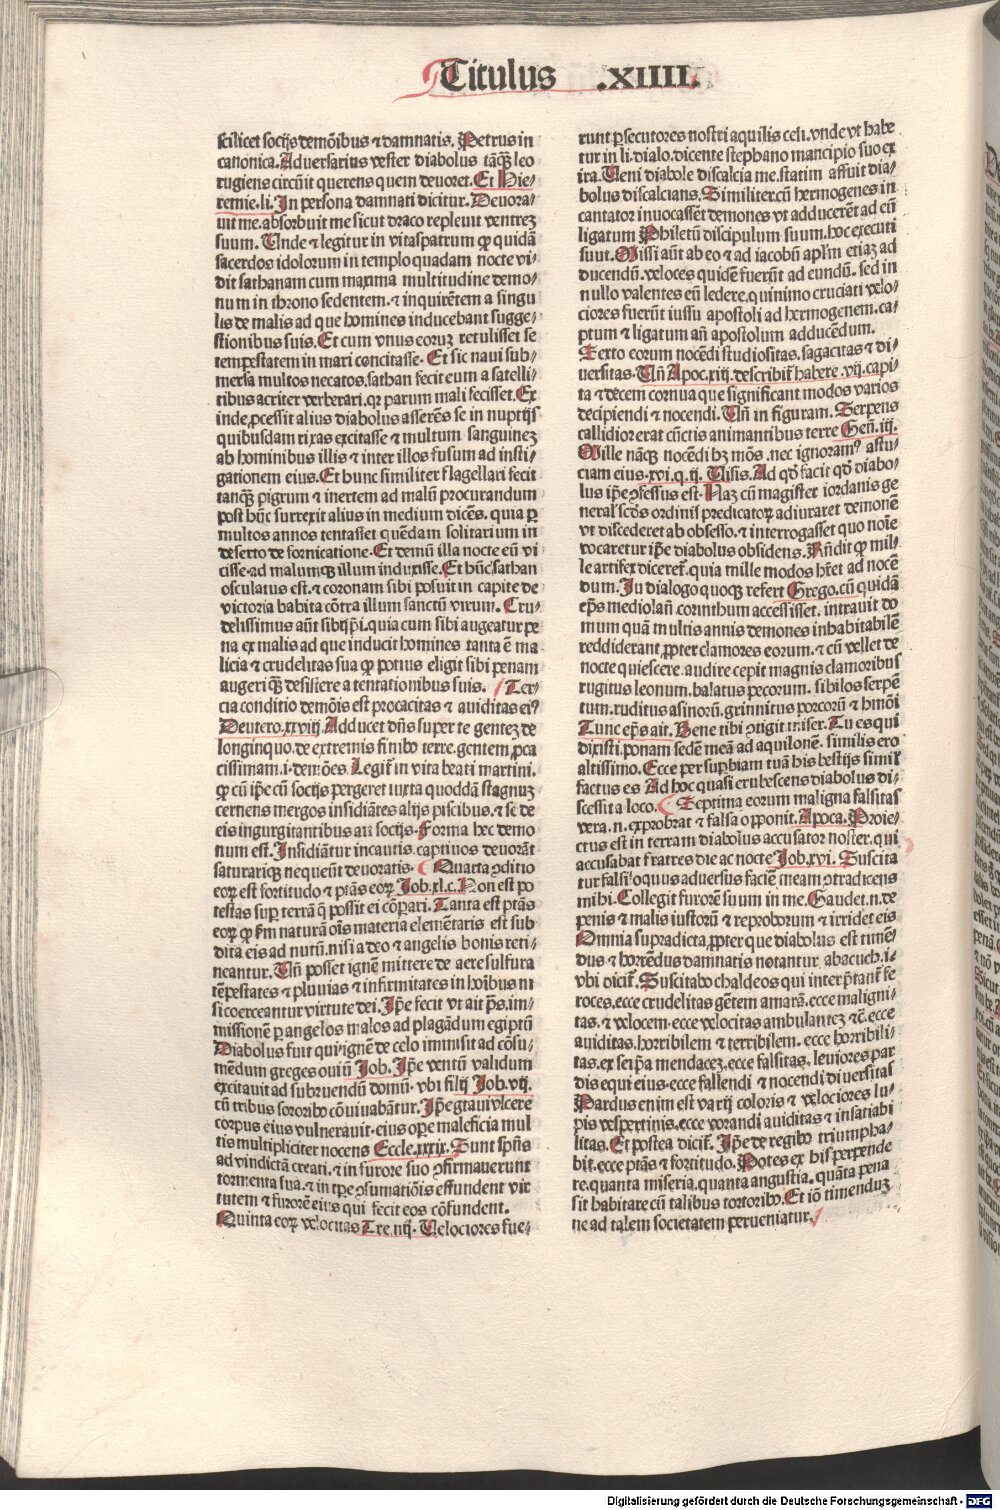 Titulus .XIIII.
scilicet socijs demõibus ⁊ damnatis. Petrus in
canonica. Adversarius vester diabolus tãq̃ leo
rugiens circũit querens quem deuoret. Et Hie⸗
remie.li. In persona damnati dicitur. Deuora⸗
uit me. absorbuit me sicut draco repleuit ventrez
suum. Unde ⁊ legitur in vitaspatrum ꝙ quidã
sacerdos idolorum in templo quadam nocte vi⸗
dit sathanam cum maxima multitudine demo⸗
num in throno sedentem. ⁊ inquirẽtem a singu
lis de malis ad que homines inducebant sugge⸗
stionibus suis. Et cum vnus eoruz retulisset se
tempestatem in mari concitasse. Et sic naui sub⸗
mersa multos necatos. sathan fecit eum a satelli⸗
tibus acriter verberari. qꝛ parum mali fecisset. Ex
inde ꝓcessit alius diabolus asserẽs se in nuptijs
quibusdam rixas excitasse ⁊ multum sanguinez
ab hominibus illis ⁊ inter illos fusum ad insti⸗
gationem eius. Et hunc similiter flagellari fecit
tanq̃ʒ pigrum ⁊ inertem ad malũ procurandum
post hũc surrexit alius in medium dicẽs. quia ꝑ
multos annos tentasset quẽdam solitarium in
deserto de fornicatione. Et demũ illa nocte eũ vi
cisse. ad malumqʒ illum induxisse. Et hũc sathan
osculatus est. ⁊ coronam sibi posuit in capite de
victoria habita cõtra illum sanctũ virum. Cru⸗
delissimus aũt sibijp̃i. quia cum sibi augeatur pe
na ex malis ad que inducit homines tanta ẽ ma
licia ⁊ crudelitas sua ꝙ potius eligit sibi penam
augeri q̃ʒ desistere a tentationibus suis. Ter⸗
cia conditio demõis est procacitas ⁊ auiditas eiꝰ
Deutero.xxviij Adducet dñs super te gentez de
longinquo. de extremis finibꝰ terre. gentem ꝓca
cissimam .i. demões. Legit᷑ in vita beati martini.
ꝙ cũ ip̃e cũ socijs pergeret iuxta quoddã stagnuz
cernens mergos insidiãtes alijs piscibus. ⁊ se de
eis ingurgitantibus ait socijs. Forma hec demo
num est. Insidiãtur incautis. captiuos deuorãt
saturariqʒ nequeũt deuoratis. Quarta ↄditio
eoꝝ est fortitudo ⁊ ptãs eoꝝ Job.xl.c. Non est po
testas suꝑ terrã q̃ possit ei cõparari. Tanta est ptãs
eoꝝ ꝙ fm naturã oĩs materia elemẽtaris est sub
dita eis ad nutũ. nisi a deo ⁊ angelis bonis reti⸗
neantur. Uñ posset ignẽ mittere de aere sulfura
tẽpestates ⁊ pluuias ⁊ infirmitates in hoĩbus ni
si coerceantur virtute dei. Ip̃e fecit vt ait p̃s. im⸗
missionẽ ꝑ angelos malos ad plagãdum egiptũ
Diabolus fuit qui ignẽ de celo immisit ad cõsu⸗
mẽdum greges ouiũ Job. Ip̃e ventũ validum
excitauit ad subruendũ domũ. vbi filij Job.vij.
cũ tribus sororibꝰ cõuiuabãtur. Ip̃e graui vlcere
corpus eius vulnerauit. eius oꝑe maleficia mul
tis multipliciter nocens Eccle.xxxix. Sunt sp̃ũs
ad vindictã creati. ⁊ in furore suo ↄfirmauerunt
tormenta sua. ⁊ in tp̃e ↄsumatiõis effundent vir
tutem ⁊ furorẽ eius qui fecit eos cõfundent.
Quinta eoꝝ velocitas Tre.iiij. Uelociores fue⸗
runt ꝑsecutores nostri aquilis celi. vnde vt habe
tur in li. dialo. dicente stephano mancipio suo ex
ira. Ueni diabole discalcia me. statim affuit dia⸗
bolus discalcians. Similiter cũ hermogenes in
cantator inuocasset demones vt adducerẽt ad eũ
ligatum Philetũ discipulum suum. hoc executi
sũut. Missi aũt ab eo ⁊ ad iacobũ apl̃m etiaz ad
ducendũ. veloces quidẽ fuerũt ad eundũ. sed in
nullo valentes eũ ledere. quinimo cruciati velo⸗
ciores fuerũt iussu apostoli ad hermogenem. ca⸗
ptum ⁊ ligatum añ apostolum adducẽdum.
Sexto eorum nocẽdi studiositas. sagacitas ⁊ di⸗
uersitas. Uñ Apoc.xiij. describit᷑ habere .vij. capi⸗
ta ⁊ decem cornua que significant modos varios
decipiendi ⁊ nocendi. Uñ in figuram. Serpens
callidior erat cũctis animantibus terre Geñ.iij.
Mille nãqʒ nocẽdi hʒ mõs. nec ignoramꝰ astu⸗
ciam eius.xvi.q.ij. Uisis. Ad qđ facit qđ diabo⸗
lus ip̃e ↄfessus est. Naz cũ magister iordanis ge
neral̃ scđs ordinis predicatoꝝ adiuraret demonẽ
vt discederet ab obsesso. ⁊ interrogasset quo noĩe
vocaretur ip̃e diabolus obsidens. Rñdit ꝙ mil⸗
le artifex diceret᷑. quia mille modos hr̃et ad nocẽ
dum. In dialogo quoqʒ refert Grego. cũ quidã
ep̃s mediolañ. corinthum accessisset. intrauit do
mum quã multis annis demones inhabitabilẽ
reddiderant ꝓpter clamores eorum. ⁊ cũ vellet de
nocte quiescere. audire cepit magnis clamoribus
rugitus leonum. balatus pecorum. sibilos serpẽ
tum. ruditus asinorũ. grinnitus porcorũ ⁊ hmõi
Tunc ep̃s ait. Bene tibi ↄtigit miser. Tu es qui
dixisti. ponam sedẽ meã ad aquilonẽ. similis ero
altissimo. Ecce per suꝑbiam tuã his bestijs simil̃
factus es Ad hoc quasi erubescens diabolus di⸗
scessit a loco. Septima eorum maligna falsitas
vera.n. exprobrat ⁊ falsa opponit. Apoca. Proie⸗
ctus est in terram diabolus accusator noster. qui
accusabat fratres die ac nocte Job.xvi. Suscita
tur falsiloquus aduersus faciẽ meam ↄtradicens
mihi. Collegit furorẽ suum in me. Gaudet.n. de
penis ⁊ malis iustorũ ⁊ reproborum ⁊ irridet eis
Omnia supradicta ꝓpter que diabolus est timẽ⸗
dus ⁊ horrẽdus damnatis notantur abacuch.i.
vbi dicit᷑. Suscitabo chaldeos qui interp̃tant᷑ fe
roces. ecce crudelitas gẽtem amarã. ecce maligni⸗
tas. ⁊ velocem. ecce velocitas ambulantez ⁊c̃. ecce
auiditas. horribilem ⁊ terribilem. ecce horribili⸗
tas. ex seip̃a mendacez. ecce falsitas. leuiores par
dis equi eius. ecce fallendi ⁊ nocendi diuersitas
Pardus enim est varij coloris ⁊ velociores lu⸗
pis vespertinis. ecce vorandi auiditas ⁊ insatiabi
litas. Et postea dicit᷑. Ip̃e de regibꝰ triumpha⸗
bit. ecce ptãs ⁊ fortitudo. Potes ex his perpende
re. quanta miseria. quanta angustia. quãta pena
sit habitare cũ talibus tortoribꝰ. Et iõ timenduz
ne ad talem societatem perueniatur.
Digitalisierung gefördert durch die Deutsche Forschungsgemeinschaft - DFG